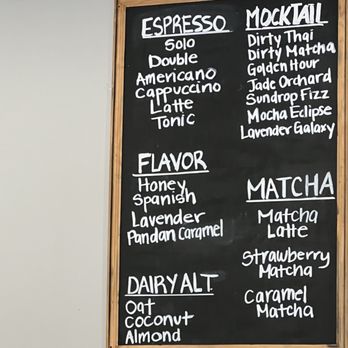 ESPRESSO
Solo
Double
Americano
Cappuccino
Latte
Tonic
FLAVOR
Honey
Spanish
Lavender
Pandan Caramel
DAIRY ALT
Oat
Coconut
Almond
MOCKTAIL
Dirty Thai
Dirty Matcha
Golden Hour
Jade Orchard
Sundrop Fizz
Mocha Eclipse
Lavender Galaxy
MATCHA
Matcha
Latte
Strawberry
Matcha
Caramel
Matcha